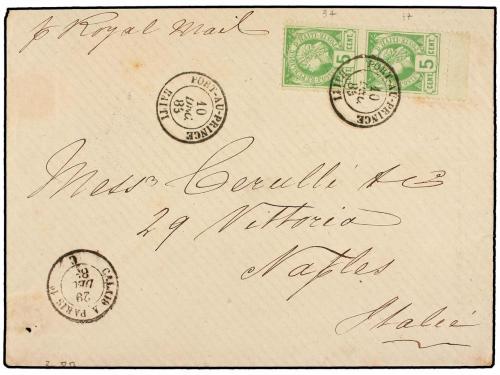 37 17
p Royal Mail
5 CENT. 5 CENT.
PORT-AU-PRINCE
10
DEC
85
HAITI
PORT-AU-PRINCE
10
DEC
85
HAITI
Messrs Cerulli & Co
29 Vittoria
Naples
Italie
CALAIS A PARIS
29
DEC
85